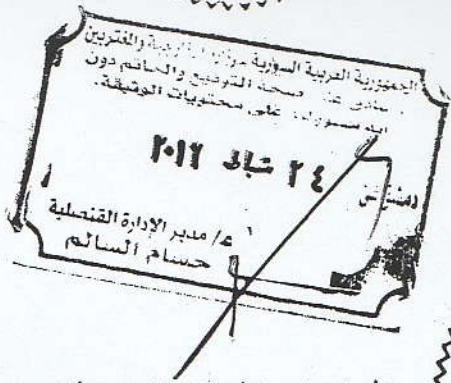 الجمهورية العربية السورية وزارة الخارجية والمغتربين
صحة التوقيع والخاتم دون
على محتويات الوثيقة.
دمشق في
٢٤ شباط ٢٠١٦
ع/ مدير الإدارة القنصلية
حسام السالم